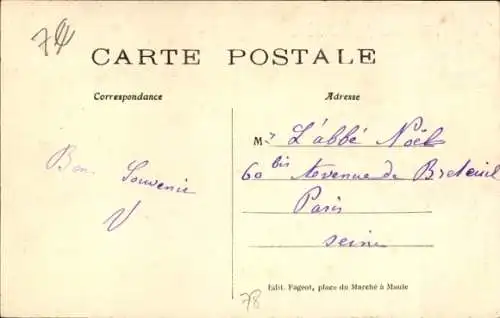 CARTE POSTALE
Correspondance
Adresse
Bon Souvenir
V
M. L'abbé Noël
60 bis Avenue de Breteuil
Paris
Seine
78
Edit. Fageot, place du Marché à Maule